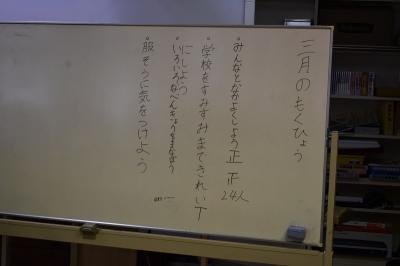 三月のもくひょう
•みんなとなかよくしよう 正 正 24人
•学校をすみずみまできれいT
にしよう
•いろいろなべんきょうをまなぼう
•服そうに気をつけよう